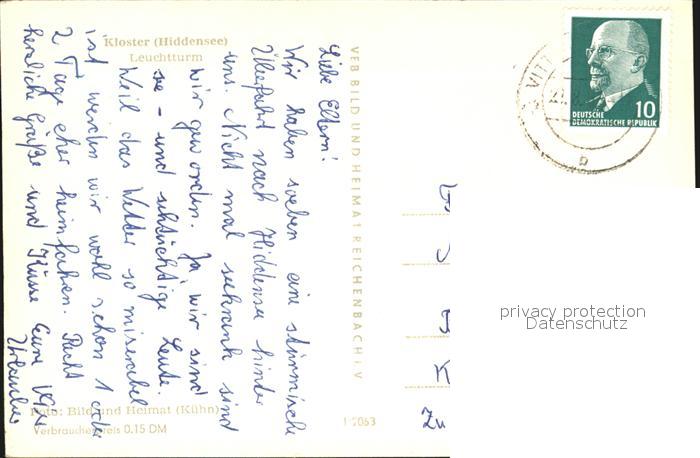 Kloster (Hiddensee)
Leuchtturm
Liebe Eltern!
Wir haben soeben eine stürmische
Überfahrt nach Hiddensee hinter
uns. Nicht mal seekrank sind
wir geworden. Ja wir sind
see- und sehtüchtige Leute.
Weil das Wetter so miserabel
ist werden wir wohl schon 1 oder
2 Tage eher heimfahren. Recht
herzliche Grüße und Küsse Eure
VEB BILD UND HEIMAT REICHENBACH i. V
Foto: Bild und Heimat (Kühn)
Verbraucherpreis 0.15 DM
Zu
VITT
10
DEUTSCHE
DEMOKRATISCHE REPUBLIK
b
privacy protection
Datenschutz